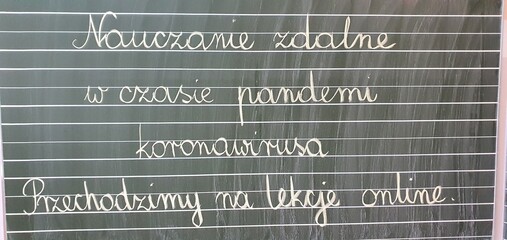 Nauczanie zdalne
w czasie pandemi
koronawirusa
Przechodzimy na lekcje online.